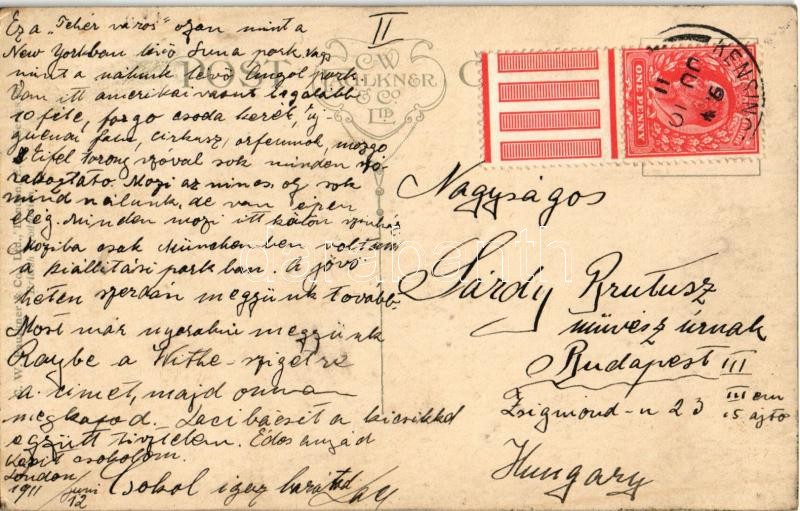 II
Ez a "Fehér város" olyan mint a
New Yorkban lévő Luna park vagy
mint a nálunk levő Angol park
Van itt amerikai vasut legalább
10 féle, forgó csoda kerék,
cirkusz, orfeumok, mozgó
Eifel torony szoval sok minden
Mozi az nincs oly sok
mind nálunk, de van épen
elég. Minden mozi itt külön szinház
Moziba csak Münchenben voltam
a kiállitási parkban. A jövő
héten szerdán megyünk tovább
Most már nyaralni megyünk
Raybe a Withe-szigetre
a cimet, majd onnan
megkapod. Laci bácsit a kicsikkel
együtt tisztelem. Édes anyád
kezét csókolom.
London
1911 juni
12
Csokol igaz barátod
POST
C.W.
FAULKNER
& Co
LTD.
KENSING
JU 12
11
ONE PENNY
Nagyságos
Sárdy Brutusz
művész urnak
Budapest III
Zsigmond-u 23 III em
15 ajtó
Hungary
darabanth